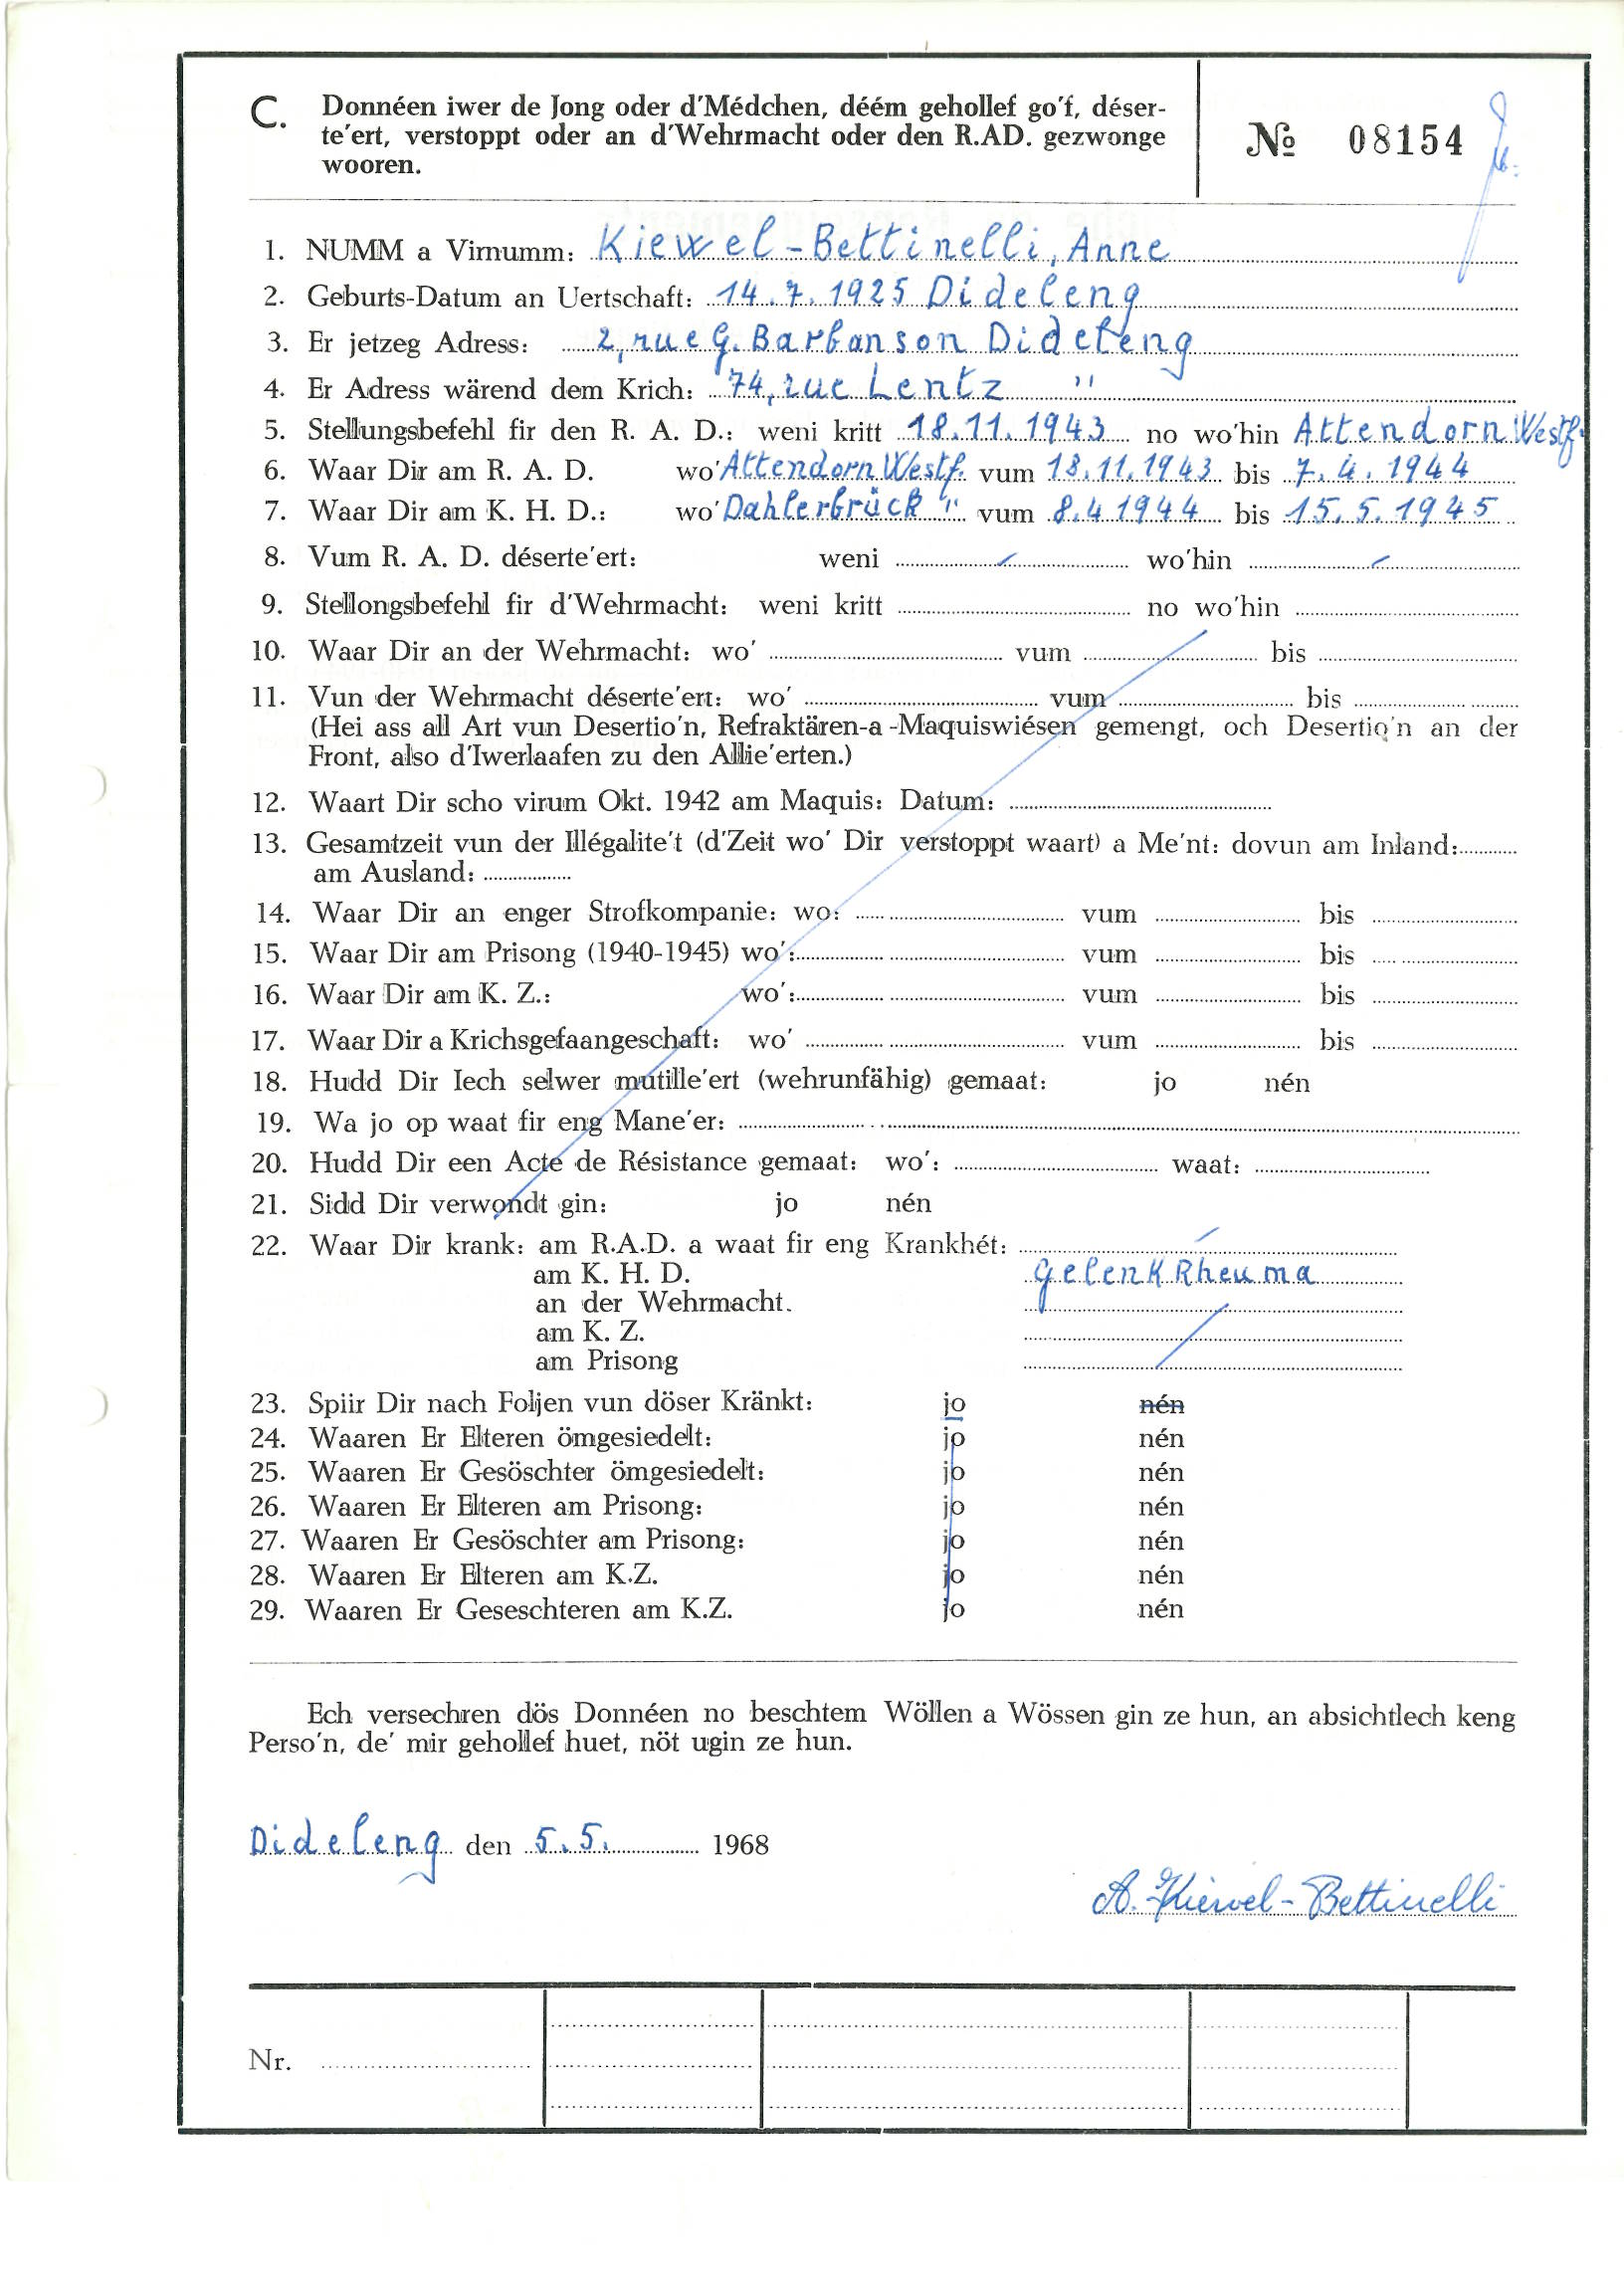 C. Donnéen iwer de Jong oder d'Médchen, déém gehollef go'f, déser-
te'ert, verstoppt oder an d'Wehrmacht oder den R.AD. gezwonge
wooren.
№ 08154
1. NUMM a Virnumm: Kiewel-Bettinelli, Anne
2. Geburts-Datum an Uertschaft: 14.7.1925 Dideleng
3. Er jetzeg Adress: 2, rue G. Barbanson Dideleng
4. Er Adress wärend dem Krich: 74, rue Lentz "
5. Stellungsbefehl fir den R. A. D.: weni kritt 18.11.1943 no wo'hin Attendorn Westf.
6. Waar Dir am R. A. D. wo' Attendorn Westf. vum 18.11.1943 bis 7.4.1944
7. Waar Dir am K. H. D.: wo' Dahlerbrück " vum 8.4 1944 bis 15.5.1945
8. Vum R. A. D. déserte'ert: weni wo'hin
9. Stellongsbefehl fir d'Wehrmacht: weni kritt no wo'hin
10. Waar Dir an der Wehrmacht: wo' vum bis
11. Vun der Wehrmacht déserte'ert: wo' vum bis
(Hei ass all Art vun Desertio'n, Refraktären-a-Maquiswiésen gemengt, och Desertio'n an der
Front, also d'Iwerlaafen zu den Allie'erten.)
12. Waart Dir scho virum Okt. 1942 am Maquis: Datum:
13. Gesamtzeit vun der Illégalite't (d'Zeit wo' Dir verstoppt waart) a Me'nt: dovun am Inland:
am Ausland:
14. Waar Dir an enger Strofkompanie: wo: vum bis
15. Waar Dir am Prisong (1940-1945) wo': vum bis
16. Waar Dir am K. Z.: wo': vum bis
17. Waar Dir a Krichsgefaangeschaft: wo' vum bis
18. Hudd Dir Iech selwer mutille'ert (wehrunfähig) gemaat: jo nén
19. Wa jo op waat fir eng Mane'er:
20. Hudd Dir een Acte de Résistance gemaat: wo': waat:
21. Sidd Dir verwondt gin: jo nén
22. Waar Dir krank: am R.A.D. a waat fir eng Krankhét:
am K. H. D. Gelenk Rheuma
an der Wehrmacht.
am K. Z.
am Prisong
23. Spiir Dir nach Foljen vun döser Kränkt: jo nén
24. Waaren Er Elteren ömgesiedelt: jo nén
25. Waaren Er Gesöschter ömgesiedelt: jo nén
26. Waaren Er Elteren am Prisong: jo nén
27. Waaren Er Gesöschter am Prisong: jo nén
28. Waaren Er Elteren am K.Z. jo nén
29. Waaren Er Geseschteren am K.Z. jo nén
Ech versechren dös Donnéen no beschtem Wöllen a Wössen gin ze hun, an absichtlech keng
Perso'n, de' mir gehollef huet, nöt ugin ze hun.
Dideleng den 5.5. 1968
A. Kiewel-Bettinelli
Nr.